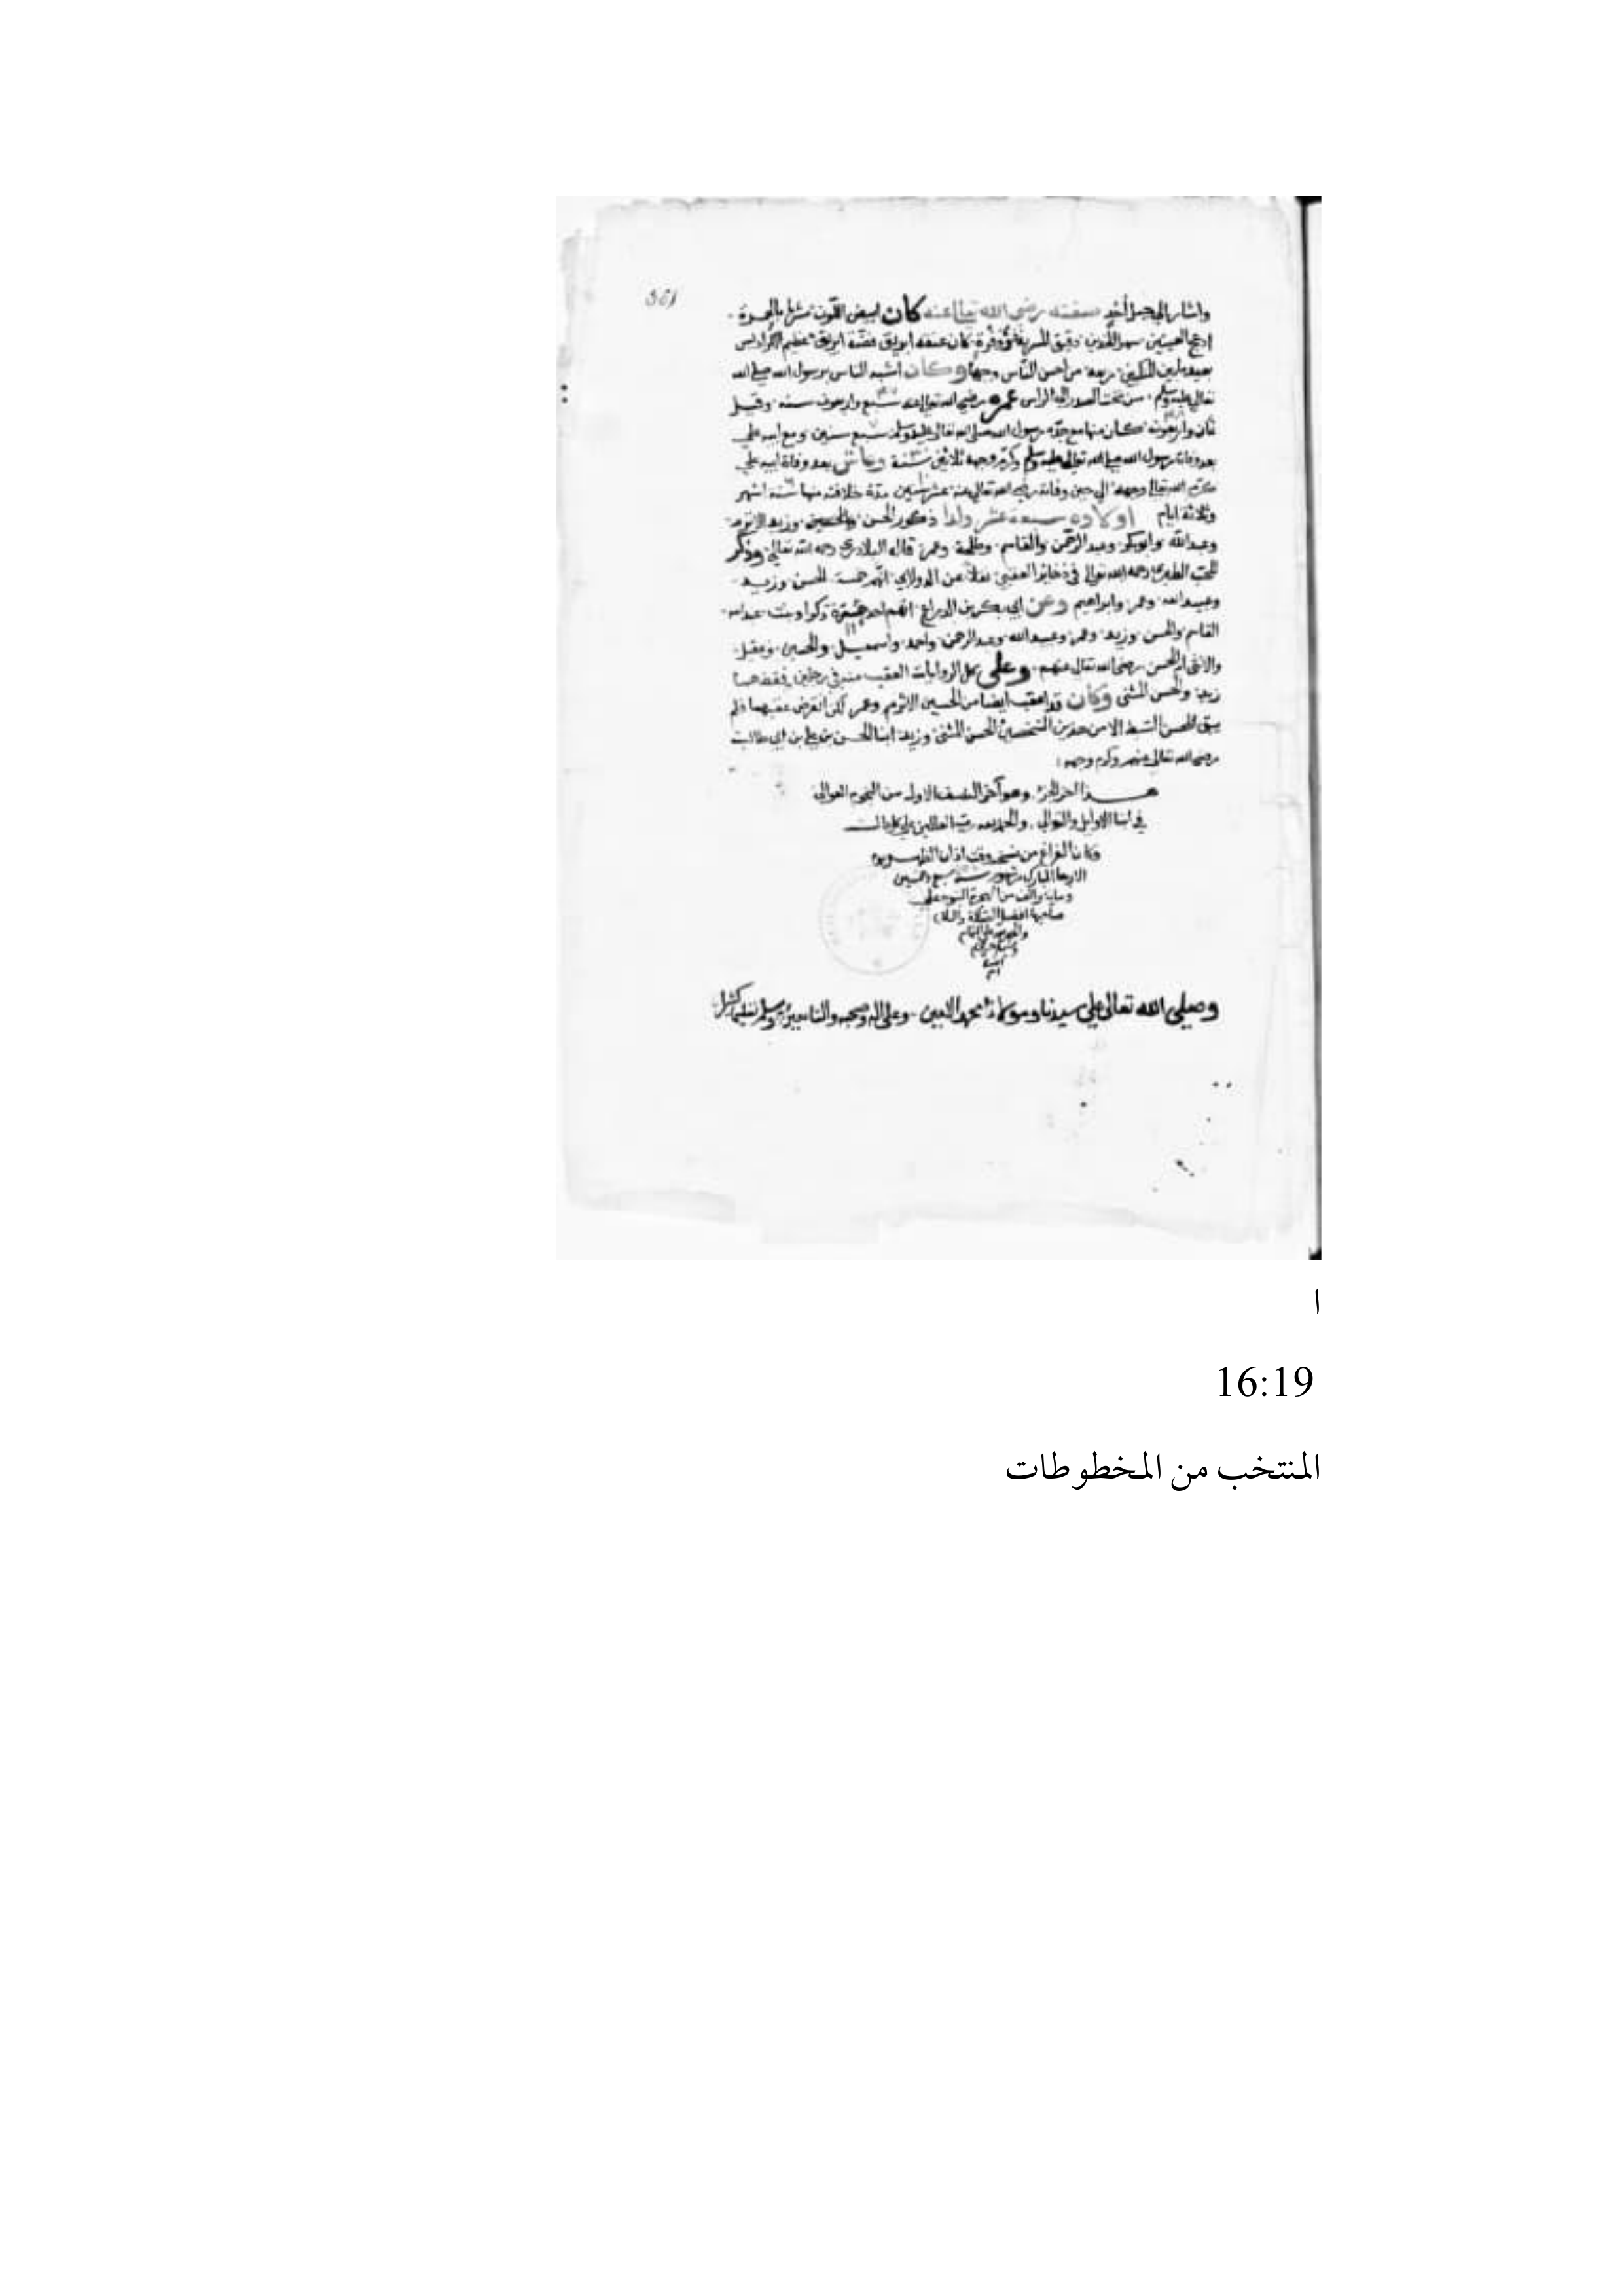 361
واشار الى جبل أحد صفته رضي الله تعالى عنه كان ابيض اللون مشربا بالحمرة
ادعج العينين سهل الخدين دقيق المسربة ذو وفرة كان عنقه ابريق فضة ابريق عظيم الكراديس
بعيد ما بين المنكبين ربعة من احسن الناس وجها وكان اشبه الناس برسول الله صلى الله
تعالى عليه وسلم من تحت الصدر الى الراس عمره رضي الله تعالى عنه سبع واربعون سنة وقيل
ثمان واربعون كان منها مع جده رسول الله صلى الله تعالى عليه وسلم سبع سنين ومع ابيه علي
بعد وفاة رسول الله صلى الله تعالى عليه وسلم وكرم وجهه ثلاثين سنة وعاش بعد وفاة ابيه علي
كرم الله تعالى وجهه الى حين وفاته رضي الله تعالى عنه عشر سنين مدة خلافته منها ستة اشهر
وثلاثة ايام اولاده سبعة عشر ولدا ذكور الحسن والحسين وزيد الاثرم
وعبد الله وابوبكر وعبد الرحمن والقاسم وطلحة وعمر قاله البلاذري رحمه الله تعالى وذكر
المحب الطبري رحمه الله تعالى في ذخاير العقبى نقلا عن الدولابي انهم خمسة الحسن وزيد
وعبيد الله وعمر وابراهيم وعن ابي بكر بن الدراع انهم احد عشرة ذكرا وبنت عبد الله
القاسم والحسن وزيد وعمر وعبيد الله وعبد الرحمن واحمد واسمعيل والحسين وعقيل
والانثى ام الحسن رضي الله تعالى عنهم وعلى كل الروايات العقب منه في رجلين فقط هما
زيد والحسن المثنى وكان قد اعقب ايضا من الحسين الاثرم وعمر لكن انقرض عقبهما فلم
يبق للحسن السبط الا من هذين الشخصين الحسن المثنى وزيد ابنا الحسن بن علي بن ابي طالب
رضي الله تعالى عنهم وكرم وجهه
هذا اخر الجزء وهو آخر النصف الاول من النجوم العوالي
في ابنا الاوايل والتوالي والحمد لله رب العالمين على كل حال
وكان الفراغ من نسخه وقت اذان الظهر يوم
الاربعا المبارك شهور سنة سبع وخمسين
وماية والف من الهجرة النبوية على
صاحبها افضل الصلاة والسلام
والحمد لله على التمام
وصلى الله تعالى على سيدنا ومولانا محمد الامين وعلى اله وصحبه والتابعين وسلم تسليما كثيرا
ا
16:19
المنتخب من المخطوطات